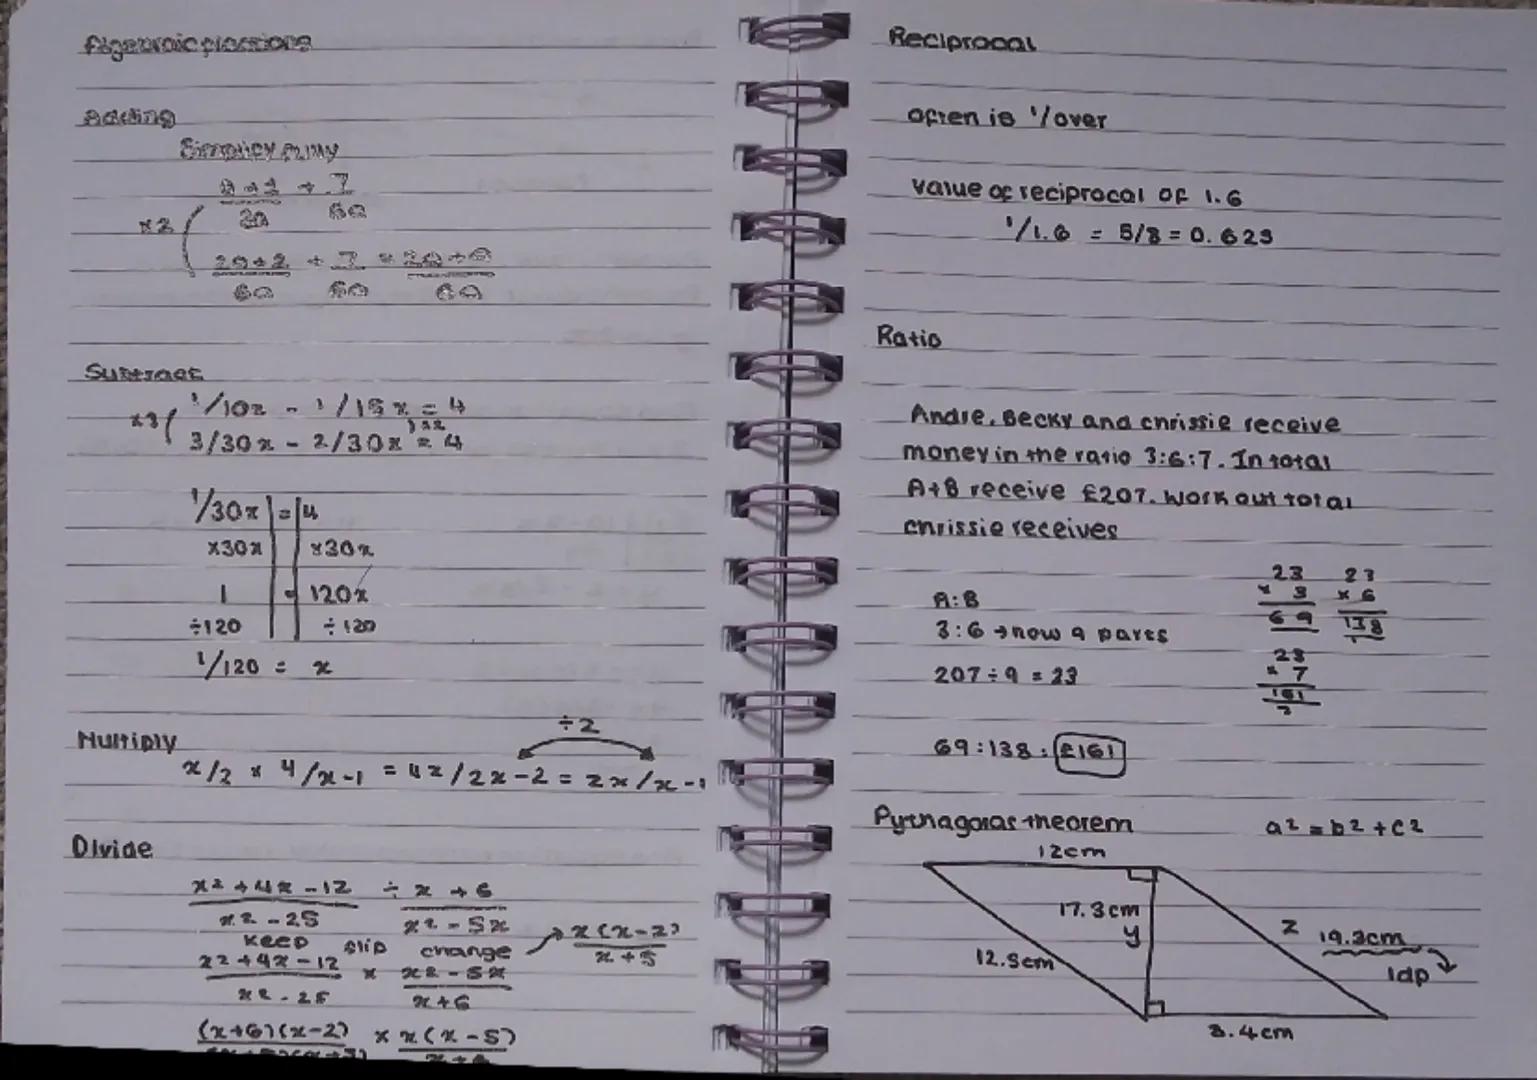 Algebraic fractions
Adding
Simplify fully
a+1 + 7
x2
2a+2 + 7 = 2a+9
6a 6a 6a
Subtract
1/10x - 1/15x = 4
x3
3/30x - 2/30x = 4
1/30x = 4
x30x x30x
1 = 120x
÷120 ÷120
1/120 = x
Multiply
÷2
x/2 x 4/x-1 = 4x/2x-2 = 2x/x-1
Divide
x2+4x-12 ÷ x+6
x2-25 x2-5x
Keep flip change
x(x-2)
x+5
x2+4x-12 x x2-5x
x2-25 x+6
(x+6)(x-2) x x(x-5)
x+6
Reciprocal
often is 1/over
value of reciprocal of 1.6
1/1.6 = 5/8 = 0.625
Ratio
Andre, Becky and chrissie receive
money in the ratio 3:6:7. In total
A+B receive £207. Work out total
chrissie receives
A:B
3:6 → now 9 parts
207÷9 = 23
23
x 3
69
23
x 6
138
1
23
x 7
161
2
69:138:£161
Pythagoras theorem a2=b2+c2
12cm
17.3cm
y
z
19.3cm
1dp
12.5cm
8.4cm